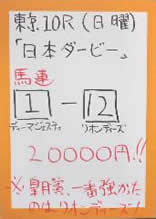 東京10R（日曜）
「日本ダービー」
馬連
1 － 12
ディーマジェスティ リオンディーズ
20000円!!
※皐月賞、一番強かた
のはリオンディーズ!